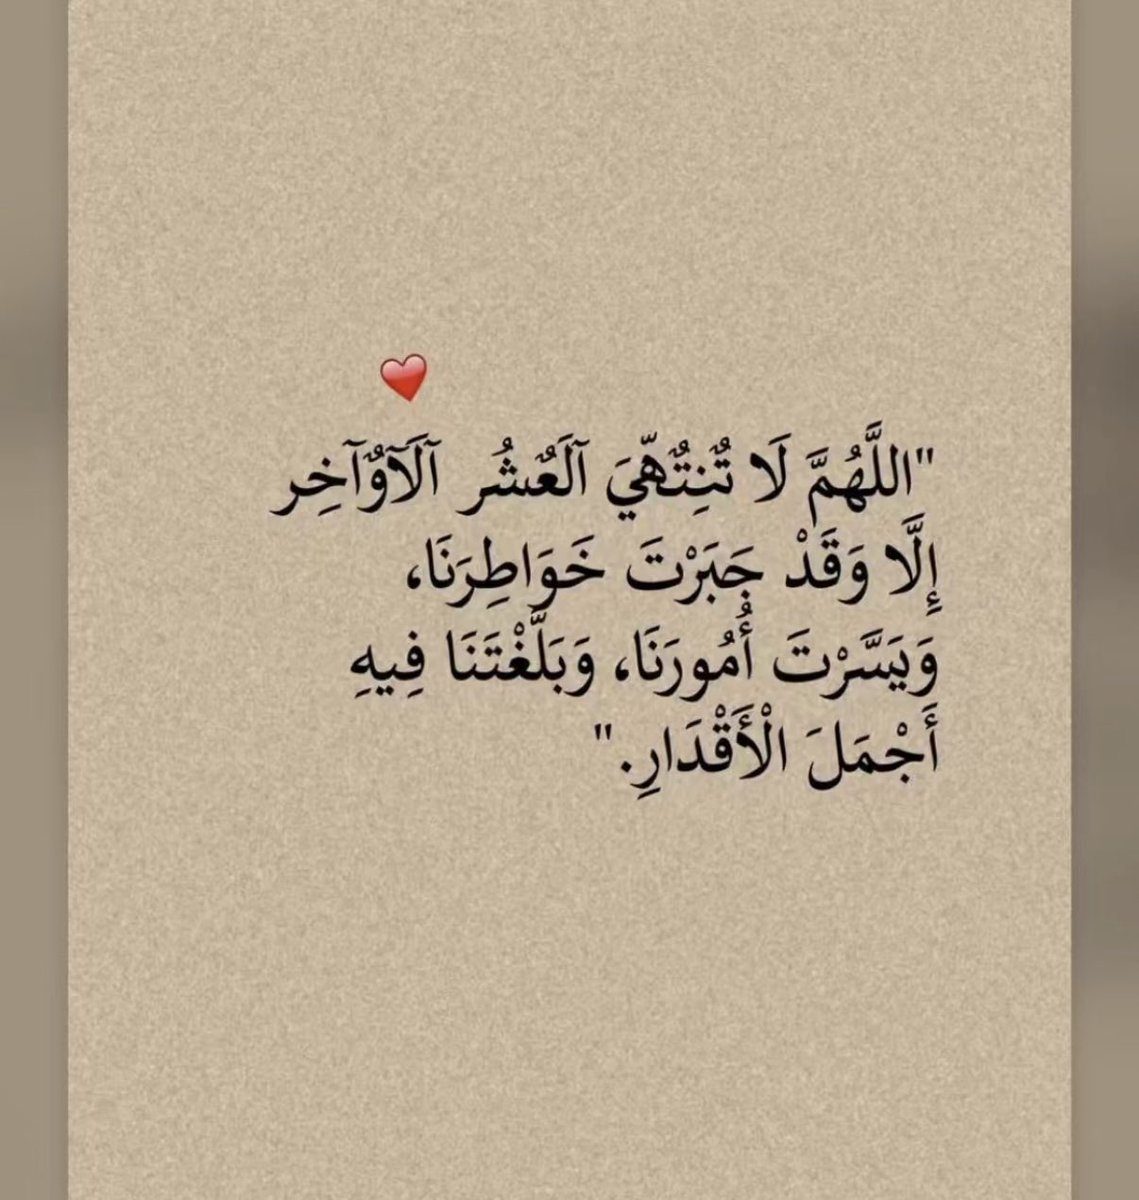 "اللَّهُمَّ لَا تٌنِتٌهّيَ آلَعٌشُر آلَآوٌآخِر
إِلَّا وَقَدْ جَبَرْتَ خَوَاطِرَنَا،
وَيَسَّرْتَ أُمُورَنَا، وَبَلَّغْتَنَا فِيهِ
أَجْمَلَ الْأَقْدَارِ."